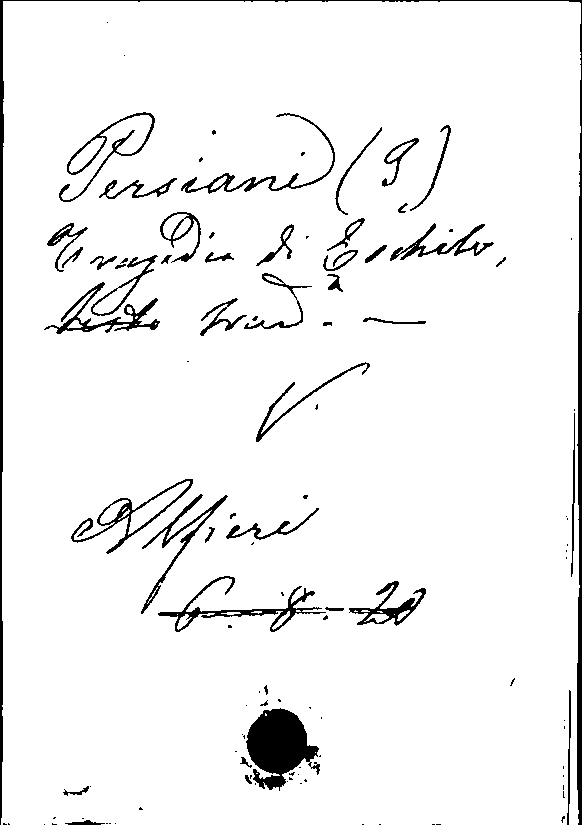 Persiani (I)
Tragedia di Eschilo,
testo trad.a —
V.
Alfieri
6. 8. 20